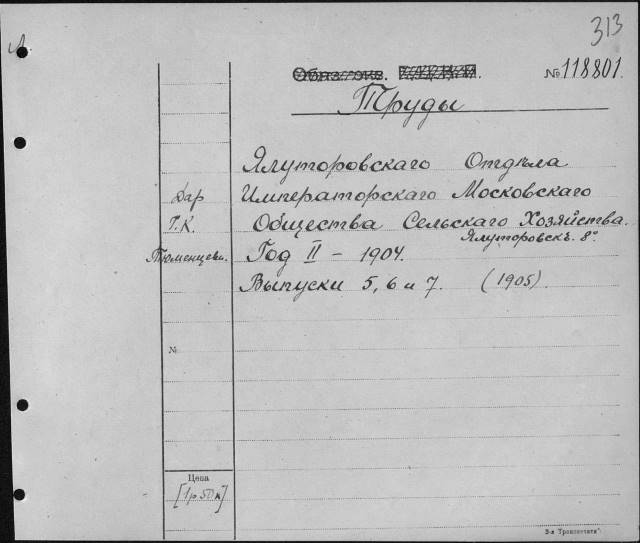 313
Обяз. экз.
№ 118801.
Труды
Ялуторовскаго Отдѣла
Дар Императорскаго Московскаго
Г.К. Общества Сельскаго Хозяйства.
Ялуторовскъ. 8°.
Тюменцева. Год II – 1904.
Выпуски 5, 6 и 7. (1905).
№
Цена
[1 р 50 к]